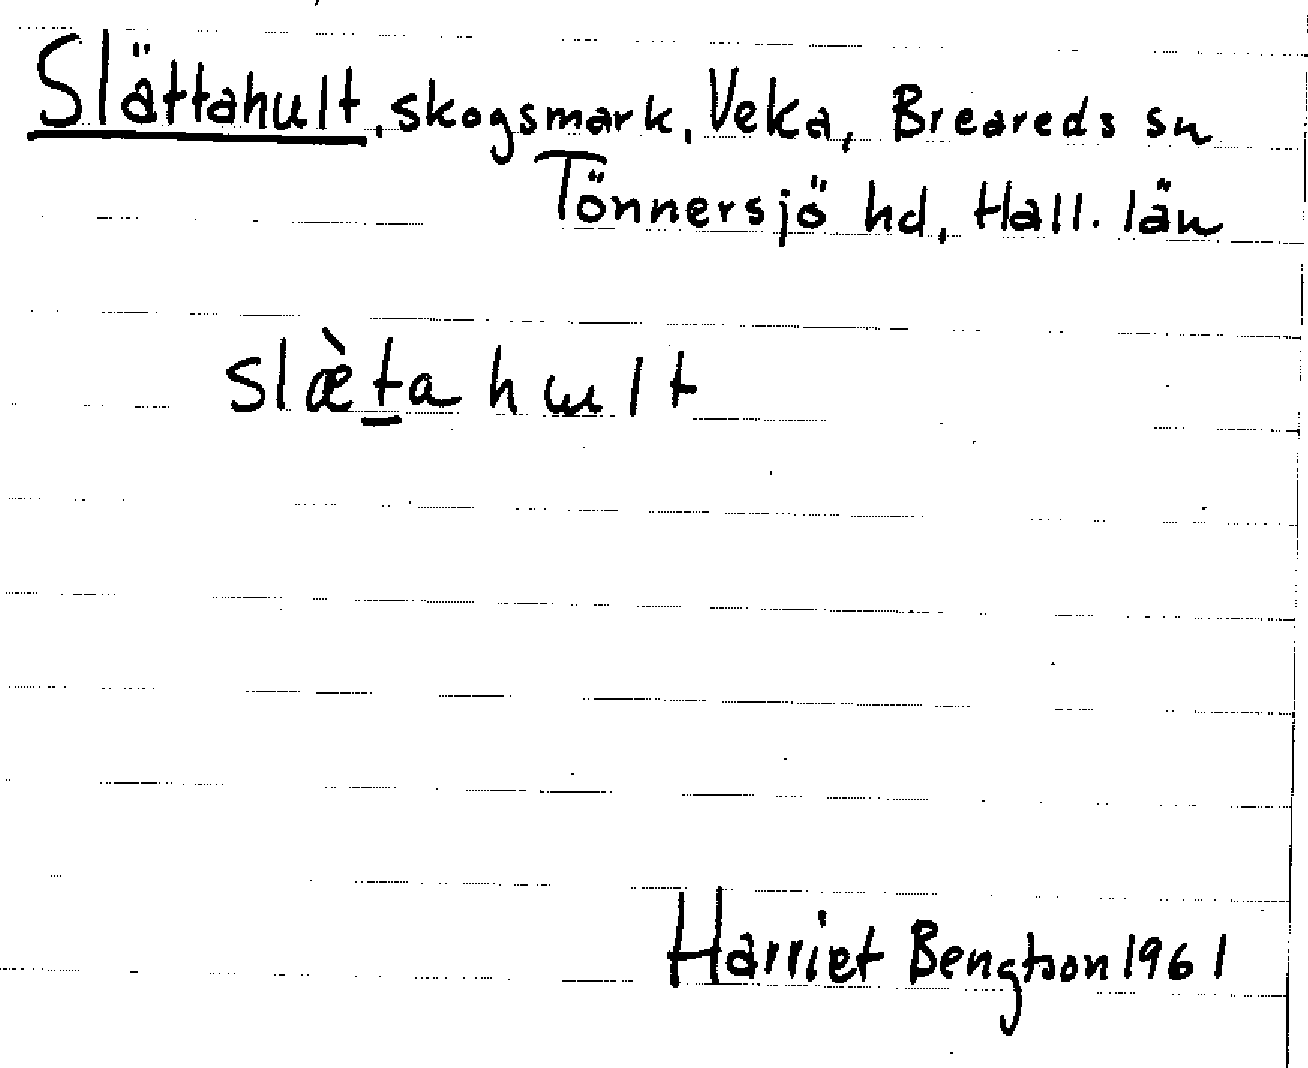 Slättahult, skogsmark, Veka, Breareds sn
Tönnersjö hd, Hall. län
slæ̀t̲a hɯlt
Harriet Bengtson 1961